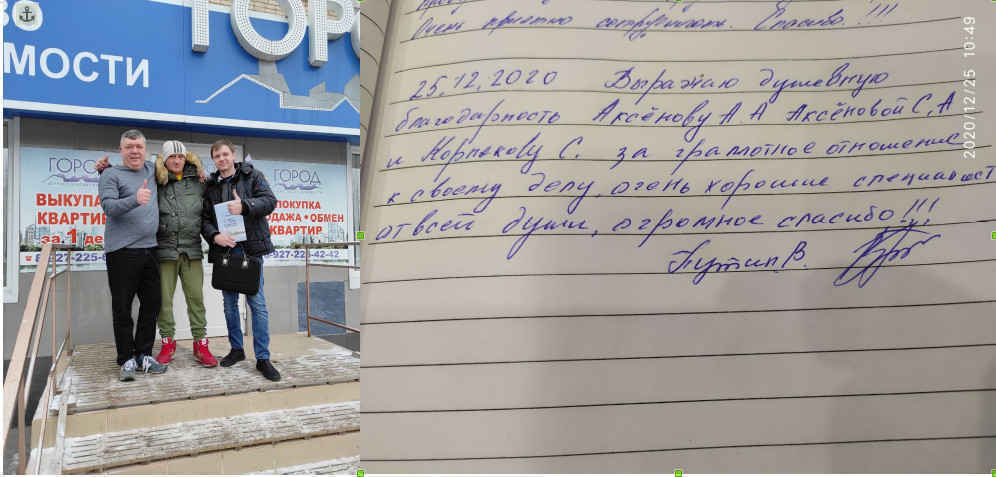 ГОРО
МОСТИ
ГОРОД
ВЫКУПА
КВАРТИР
за 1 де
8-927-225-6
ГОРОД
ПОКУПКА
ДАЖА • ОБМЕН
КВАРТИР
927-225-42-42
Очень приятно сотрудничать. Спасибо. !!!
25.12.2020 Выражаю душевную
благодарность Аксёнову А А Аксёновой С,А
и Корпекову С. за грамотное отношение
к своему делу, очень хорошие специалист
от всей души, огромное спасибо!!!
Путин В.
2020/12/25 10:49